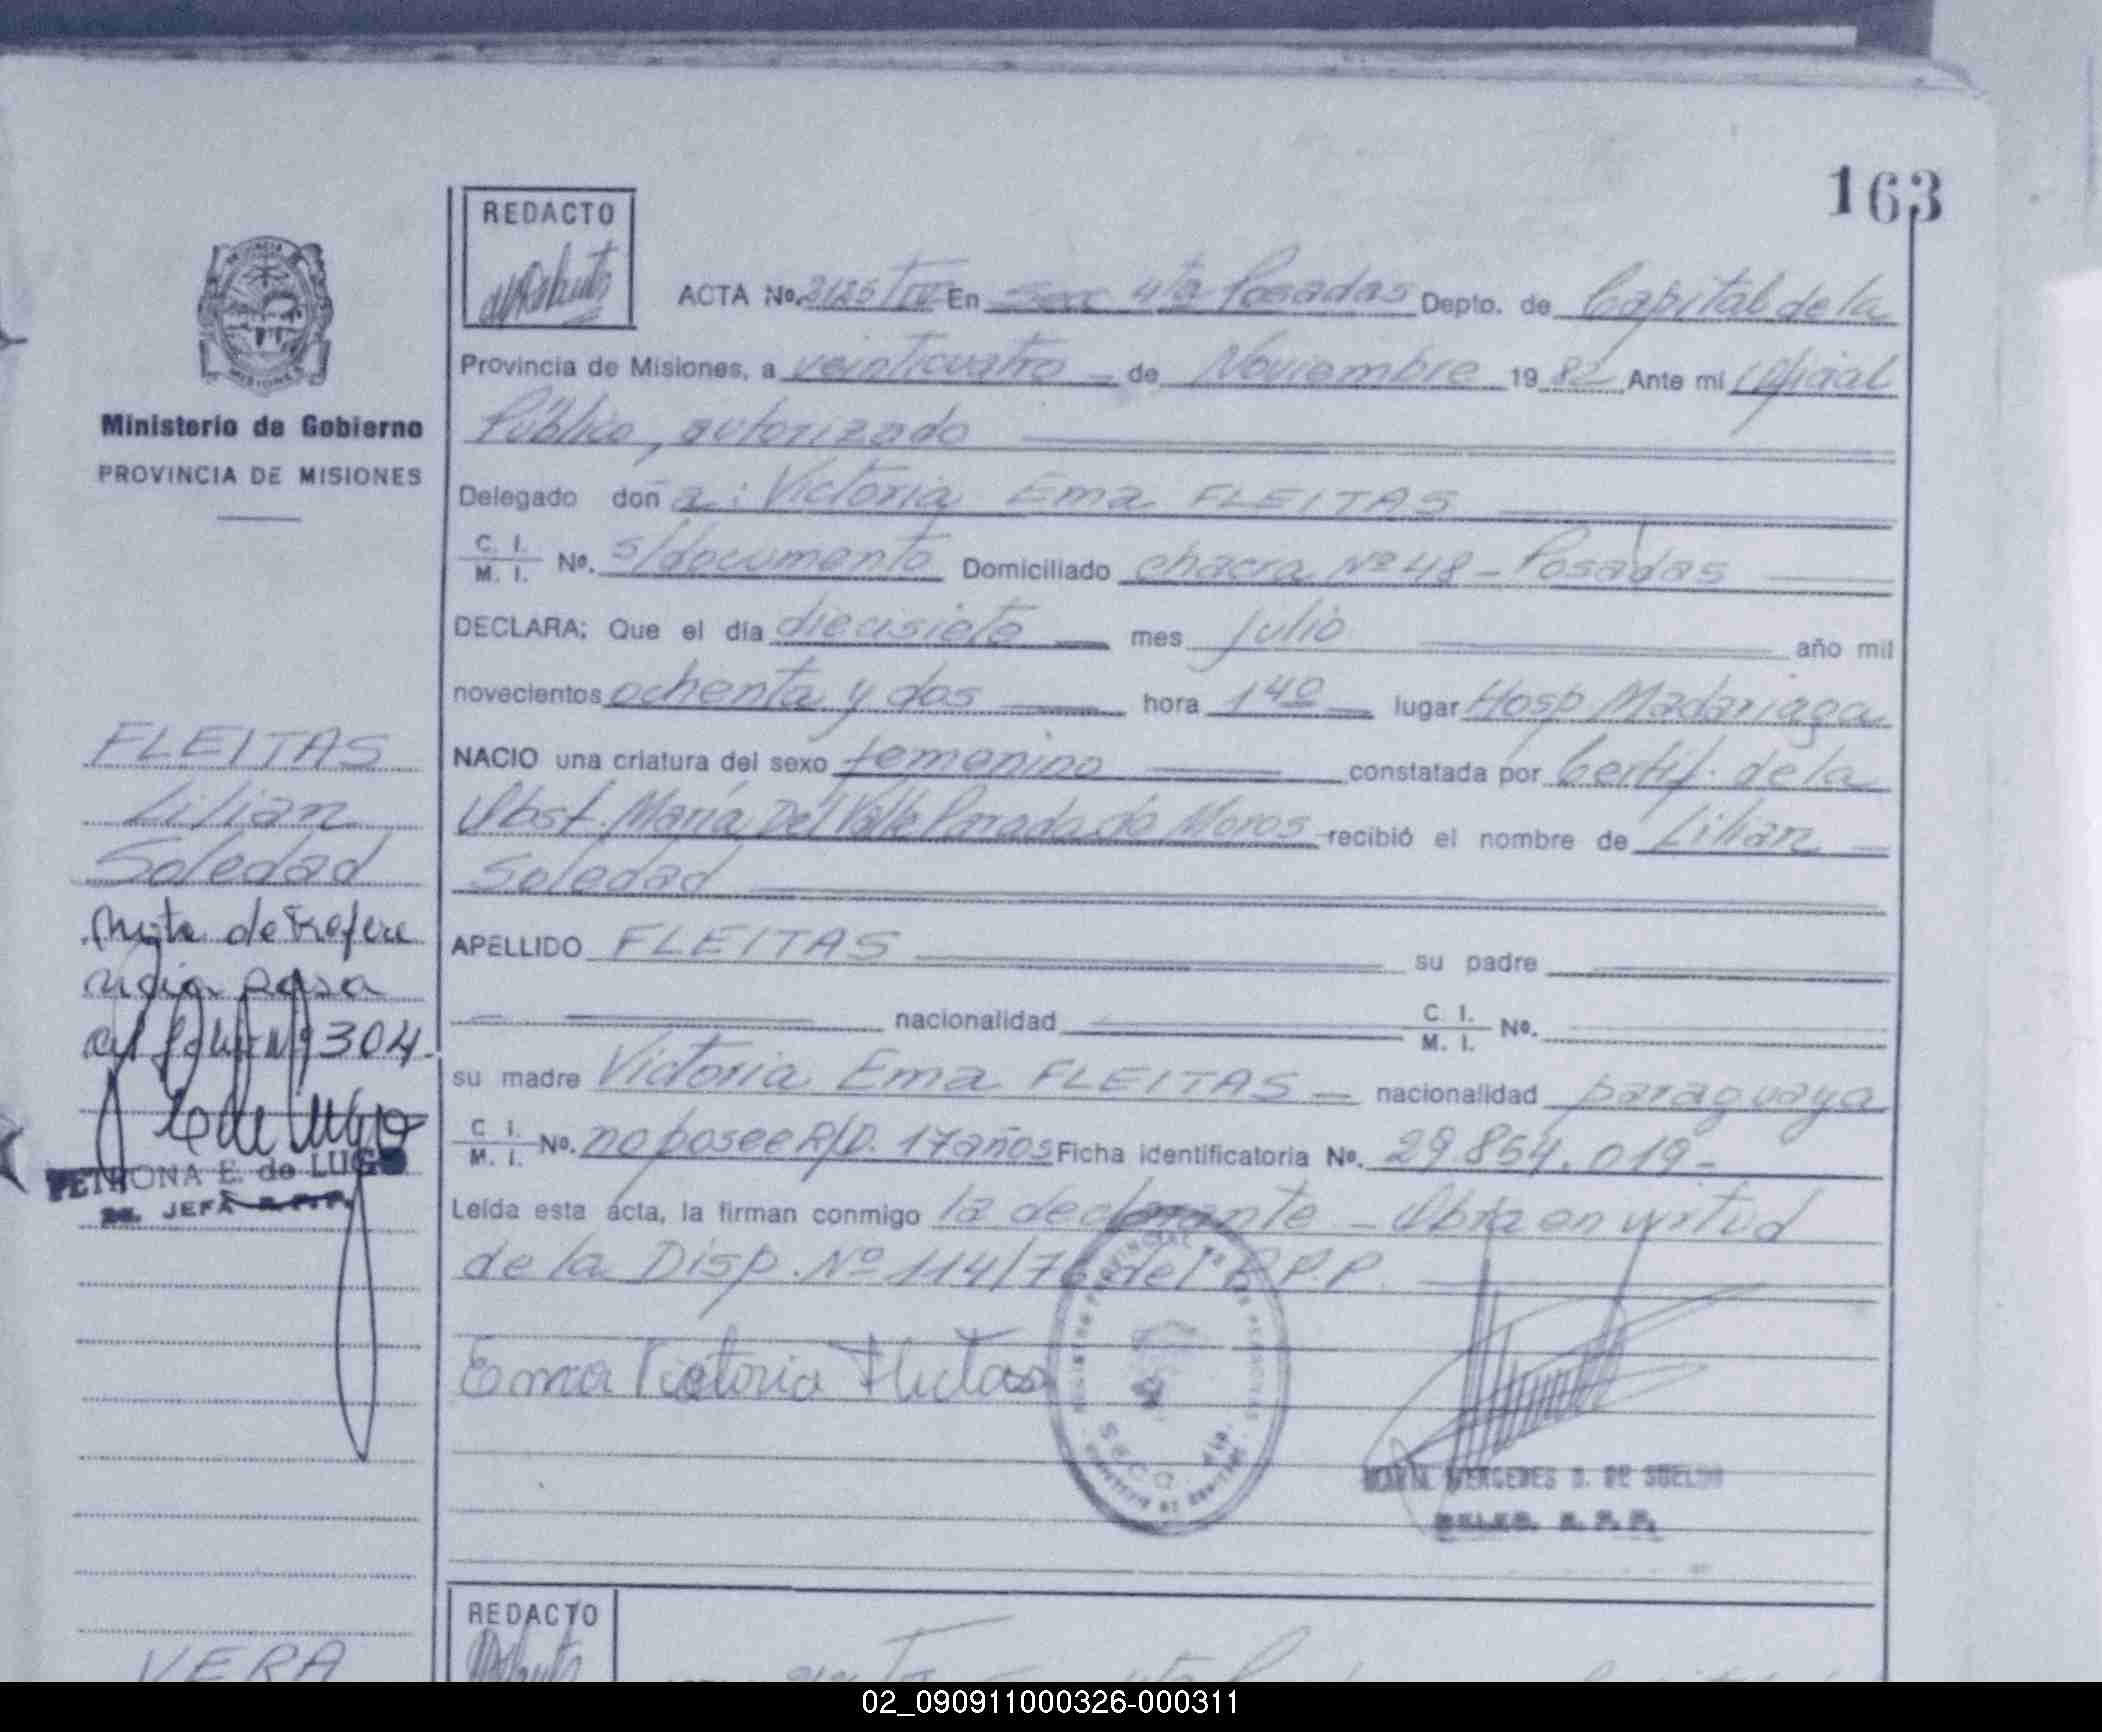 163
REDACTO
ACTA Nº. 2125 En Sec 4ta Posadas Depto. de Capital de la
Provincia de Misiones, a veinticuatro de Noviembre 1982 Ante mi Oficial
Público, autorizado
Ministerio de Gobierno
PROVINCIA DE MISIONES
Delegado doña: Victoria Ema FLEITAS
C. I. / M. I. Nº. s/documento Domiciliado chacra Nº 48 - Posadas
DECLARA: Que el día diecisiete mes julio año mil
novecientos ochenta y dos hora 1 40 lugar Hosp Madariaga
NACIO una criatura del sexo femenino constatada por Certif. de la
Obst. María Del Valle Parada de Moros recibió el nombre de Lilian
Soledad
APELLIDO FLEITAS su padre
nacionalidad C. I. / M. I. Nº.
su madre Victoria Ema FLEITAS nacionalidad paraguaya
C. I. / M. I. Nº. no posee R/D. 17 años Ficha identificatoria Nº. 29.854.019-
Leída esta acta, la firman conmigo la declarante - Obra en virtud
de la Disp. Nº 114/76 del R.P.P.
Ema Victoria Fleitas
MERCEDES S. DE SUELDO
DELEG. R. P. P.
FLEITAS
Lilian
Soledad
Nota de Refere
ncia pasa
al folio Nº 304.
PETRONA E. de LUGO
JEFA R.P.P.
REDACTO
VERA
02_090911000326-000311